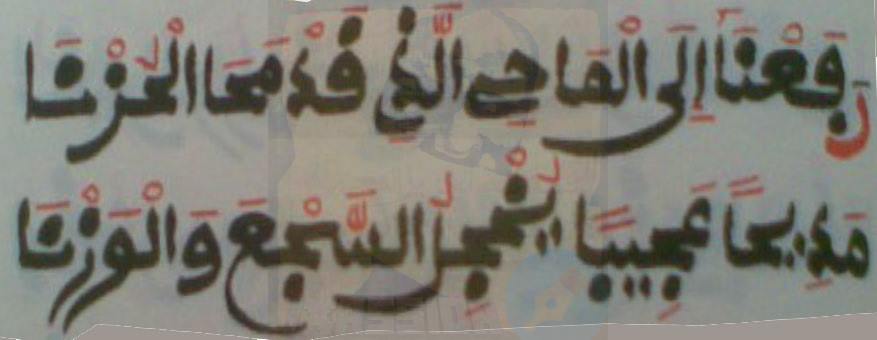 رَفَعْنَا إِلَى الْمَاحِي الَّذِي قَدْ مَحَا الْحُزْنَا
مَدِيحًا عَجِيبًا يُخْجِلُ السَّجْعَ وَالْوَزْنَا